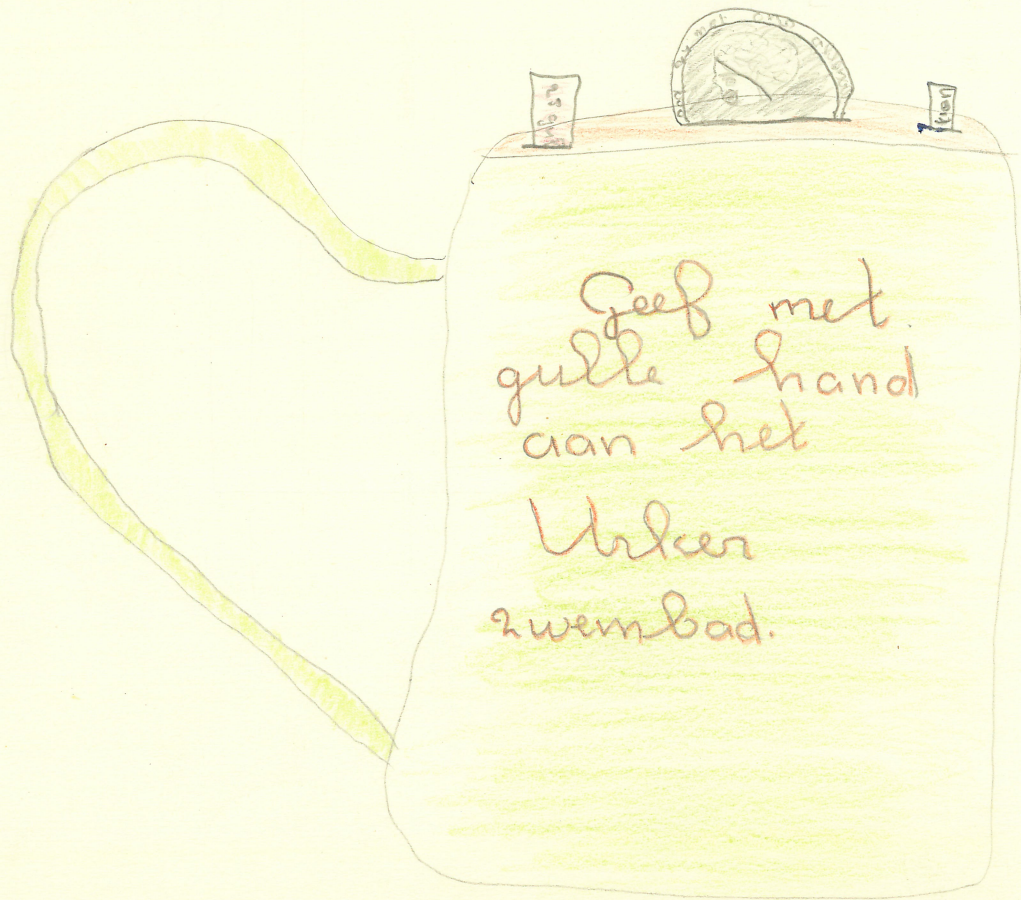 Geef met
gulle hand
aan het
Urker
zwembad.